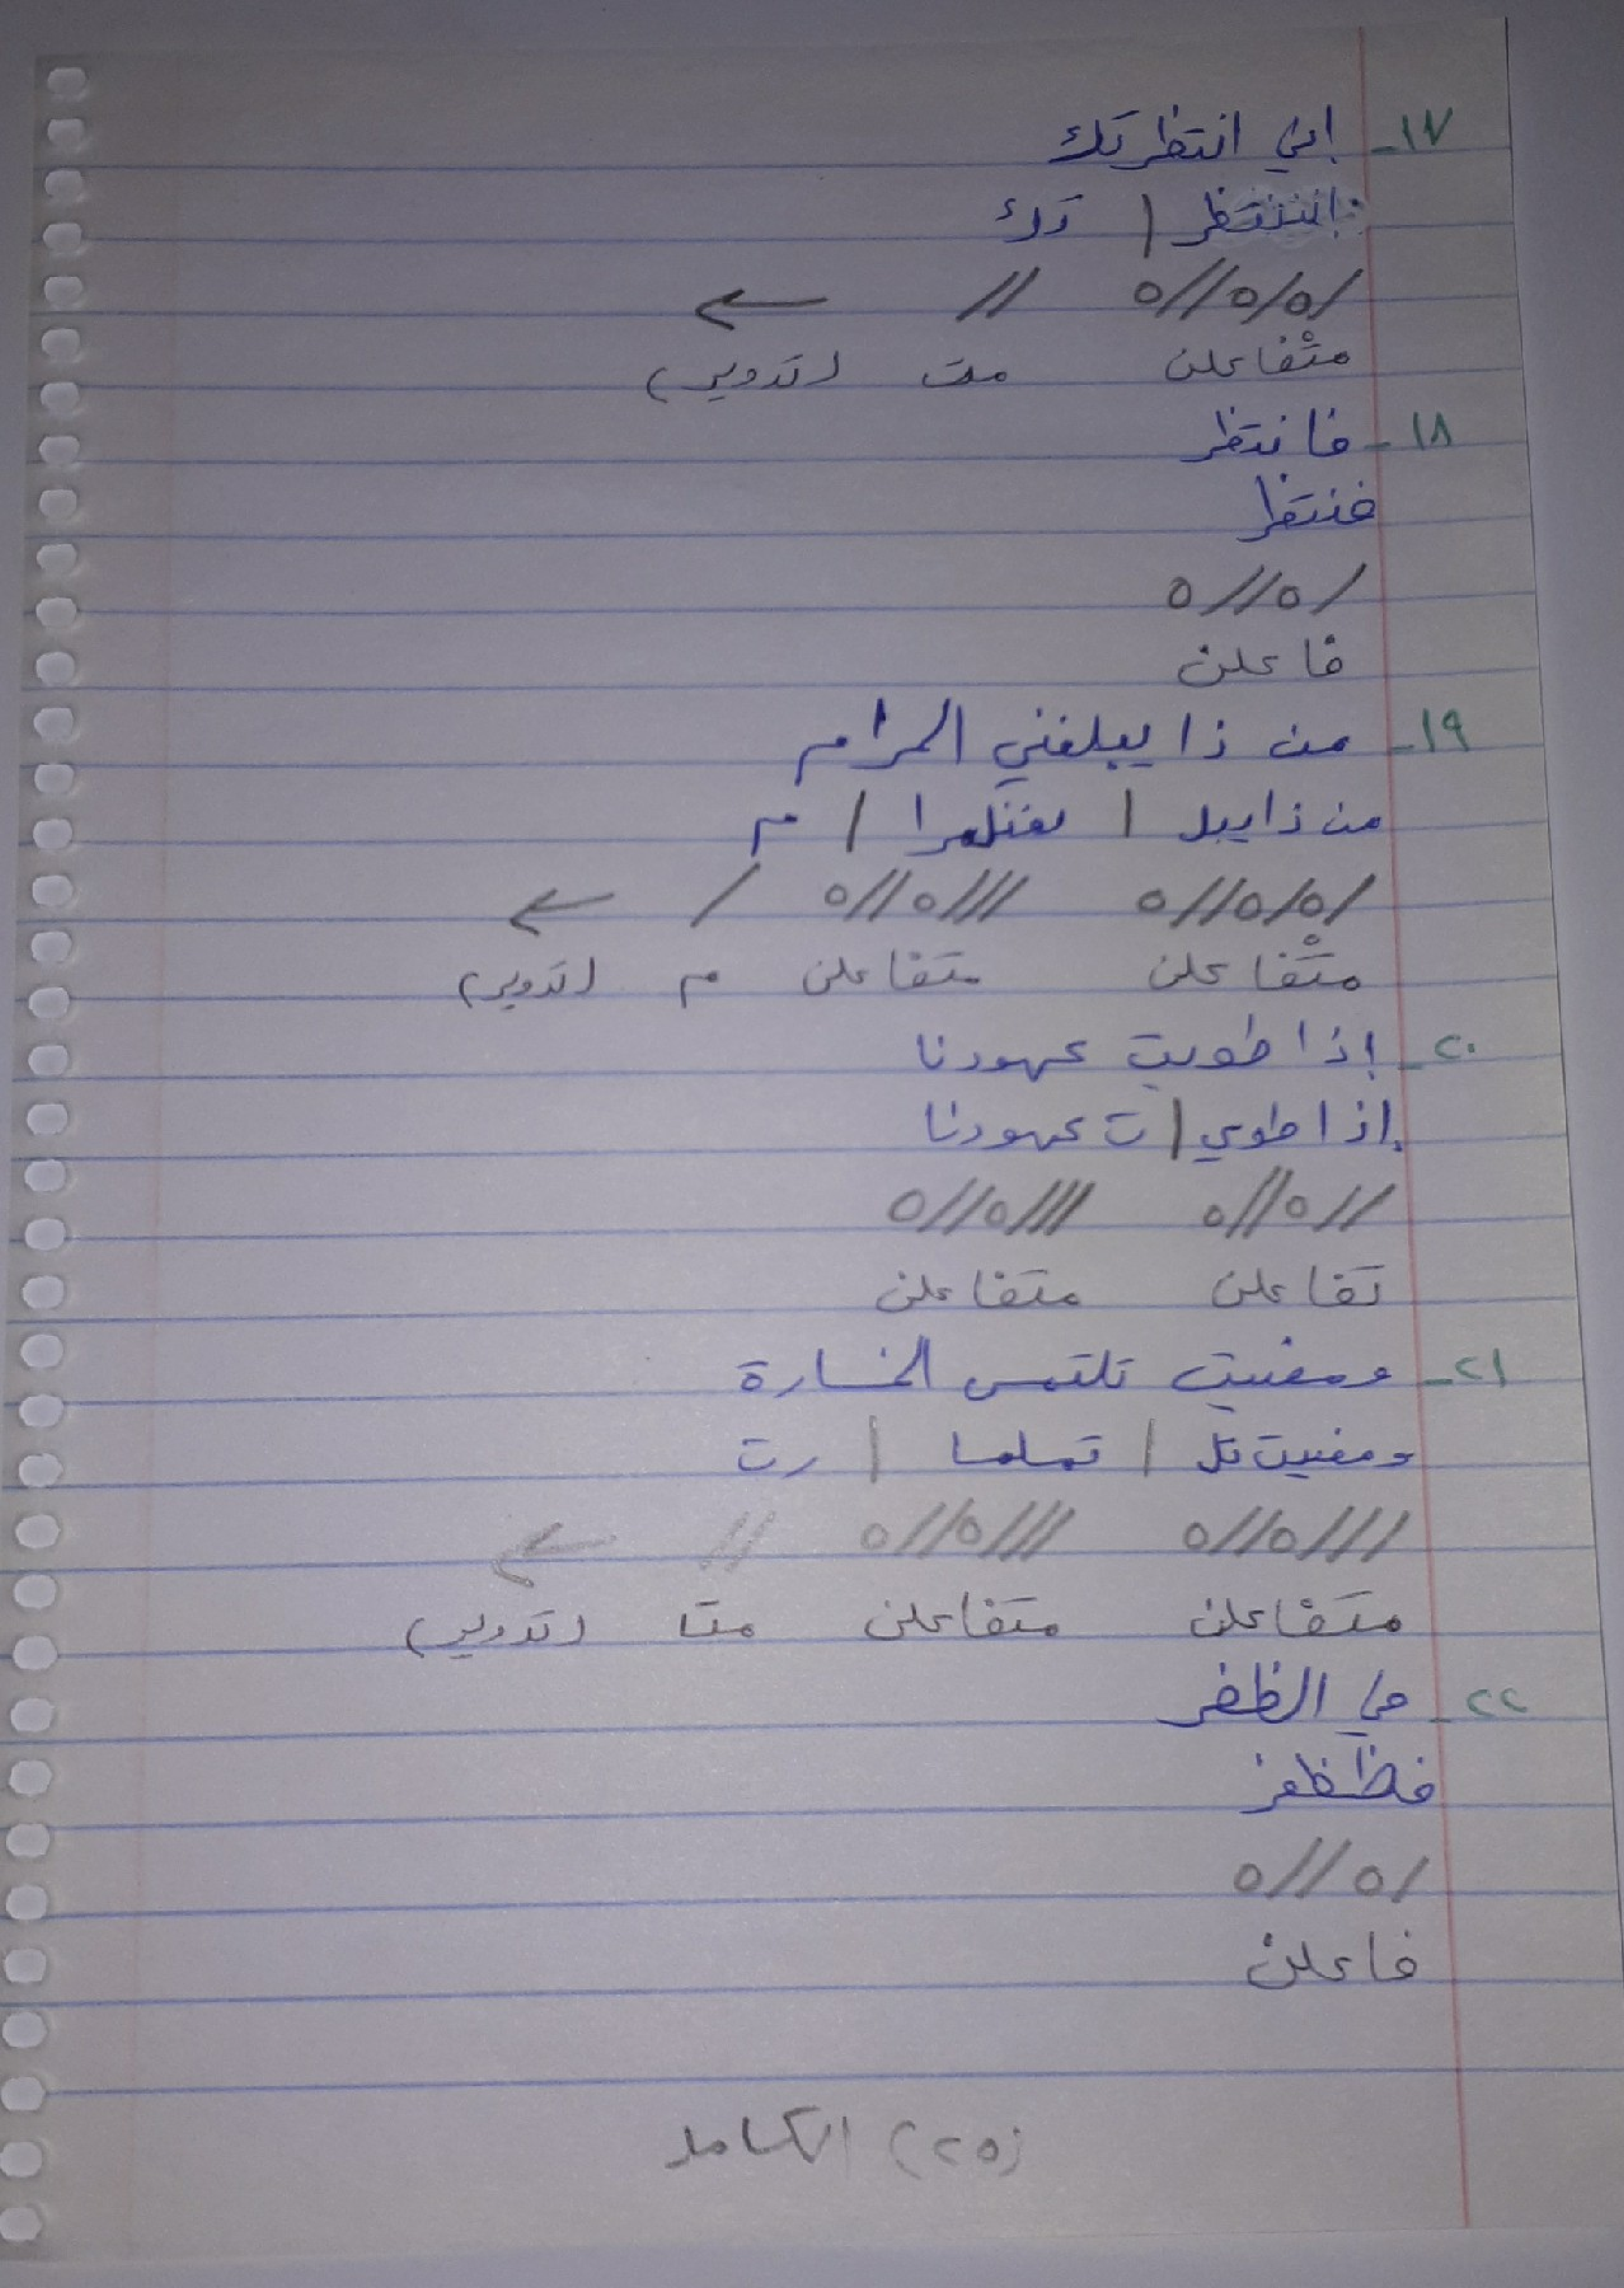 ١٧- إني انتظرتك
إننتظر | تك
/ه/ه//ه // ←
متْفاعلن مت (تدوير)
١٨- فانتظر
فنتظر
/ه//ه
فاعلن
١٩- من ذا يبلغني المرام
من ذا يبل | لغنلمرا | م
/ه/ه//ه ///ه//ه / ←
متْفاعلن متفاعلن م (تدوير)
٢٠- إذا طويت عهودنا
إذا طوي | ت عهودنا
//ه//ه ///ه//ه
تفاعلن متفاعلن
٢١- ومضيت تلتمس الخسارة
ومضيت تل | تملسا | رت
///ه//ه ///ه//ه // ←
متفاعلن متفاعلن متا (تدوير)
٢٢- في الظفر
فظظفر
/ه//ه
فاعلن
(٢٥) الكامل